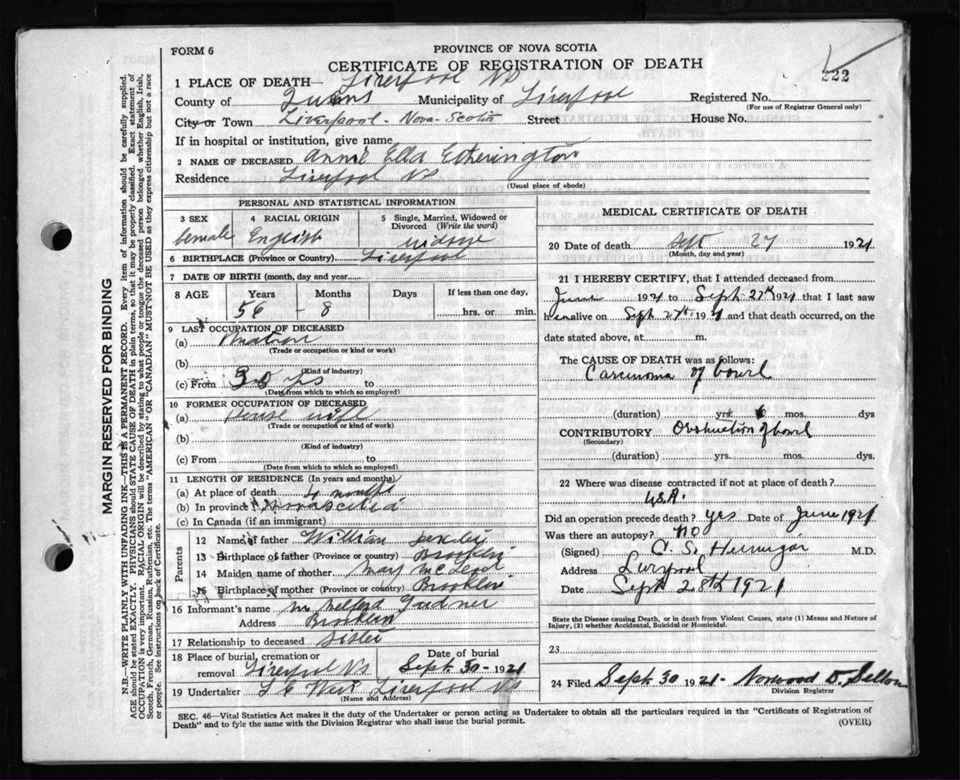 FORM 6
PROVINCE OF NOVA SCOTIA
CERTIFICATE OF REGISTRATION OF DEATH
222
1 PLACE OF DEATH— Liverpool NS
County of Queens Municipality of Liverpool Registered No.
(For use of Registrar General only)
City or Town Liverpool - Nova-Scotia Street House No.
If in hospital or institution, give name
2 NAME OF DECEASED Annie Ella Etherington
Residence Liverpool NS
(Usual place of abode)
MARGIN RESERVED FOR BINDING
N.B.—WRITE PLAINLY WITH UNFADING INK—THIS IS A PERMANENT RECORD. Every item of information should be carefully supplied.
AGE should be stated EXACTLY. PHYSICIANS should STATE CAUSE OF DEATH in plain terms, so that it may be properly classified. Exact statement of
OCCUPATION is very important. RACIAL ORIGIN will be described by stating to what people or tongue the deceased person belonged whether English, Irish,
Scotch, French, German, Russian, Ruthenian, etc. The terms "AMERICAN" or "CANADIAN" MUST NOT BE USED as they express citizenship but not a race
or people. See instructions on back of Certificate.
PERSONAL AND STATISTICAL INFORMATION
3 SEX
female
4 RACIAL ORIGIN
English
5 Single, Married, Widowed or
Divorced (Write the word)
6 BIRTHPLACE (Province or Country) Liverpool
7 DATE OF BIRTH (month, day and year)
8 AGE Years Months Days If less than one day,
56 - 8 hrs. or min.
9 LAST OCCUPATION OF DECEASED
(a) Matron
(Trade or occupation or kind or work)
(b)
(Kind of industry)
(c) From to
(Date from which to which so employed)
10 FORMER OCCUPATION OF DECEASED
(a) House wife
(Trade or occupation or kind or work)
(b)
(Kind of industry)
(c) From to
(Date from which to which so employed)
11 LENGTH OF RESIDENCE (In years and months)
(a) At place of death 4 months
(b) In province
(c) In Canada (if an immigrant)
Parents
12 Name of father William
13 Birthplace of father (Province or country) Brooklin
14 Maiden name of mother Mary McLeod
15 Birthplace of mother (Province or country) Brooklin
16 Informant's name
Address Brooklin
17 Relationship to deceased Sister
18 Place of burial, cremation or
removal Liverpool NS
Date of burial
Sept. 30 - 1921
19 Undertaker Liverpool NS
(Name and Address)
MEDICAL CERTIFICATE OF DEATH
20 Date of death Sept 27 1921
(Month, day and year)
21 I HEREBY CERTIFY, that I attended deceased from
June 1921 to Sept 27th 1921 that I last saw
h er alive on Sept 27th 1921 and that death occurred, on the
date stated above, at m.
The CAUSE OF DEATH was as follows:
Carcinoma of bowel
(duration) yrs. 6 mos. dys
CONTRIBUTORY Obstruction of bowel
(Secondary)
(duration) yrs. mos. dys.
22 Where was disease contracted if not at place of death?
U.S.A.
Did an operation precede death? yes Date of June 1921
Was there an autopsy? no
(Signed) M.D.
Address Liverpool
Date Sept 28th 1921
State the Disease causing Death, or in death from Violent Causes, state (1) Means and Nature of
Injury, (2) whether Accidental, Suicidal or Homicidal.
23
24 Filed Sept 30 1921 - Norwood D. Sellon
Division Registrar
SEC. 46—Vital Statistics Act makes it the duty of the Undertaker or person acting as Undertaker to obtain all the particulars required in the "Certificate of Registration of
Death" and to fyle the same with the Division Registrar who shall issue the burial permit.
(OVER)